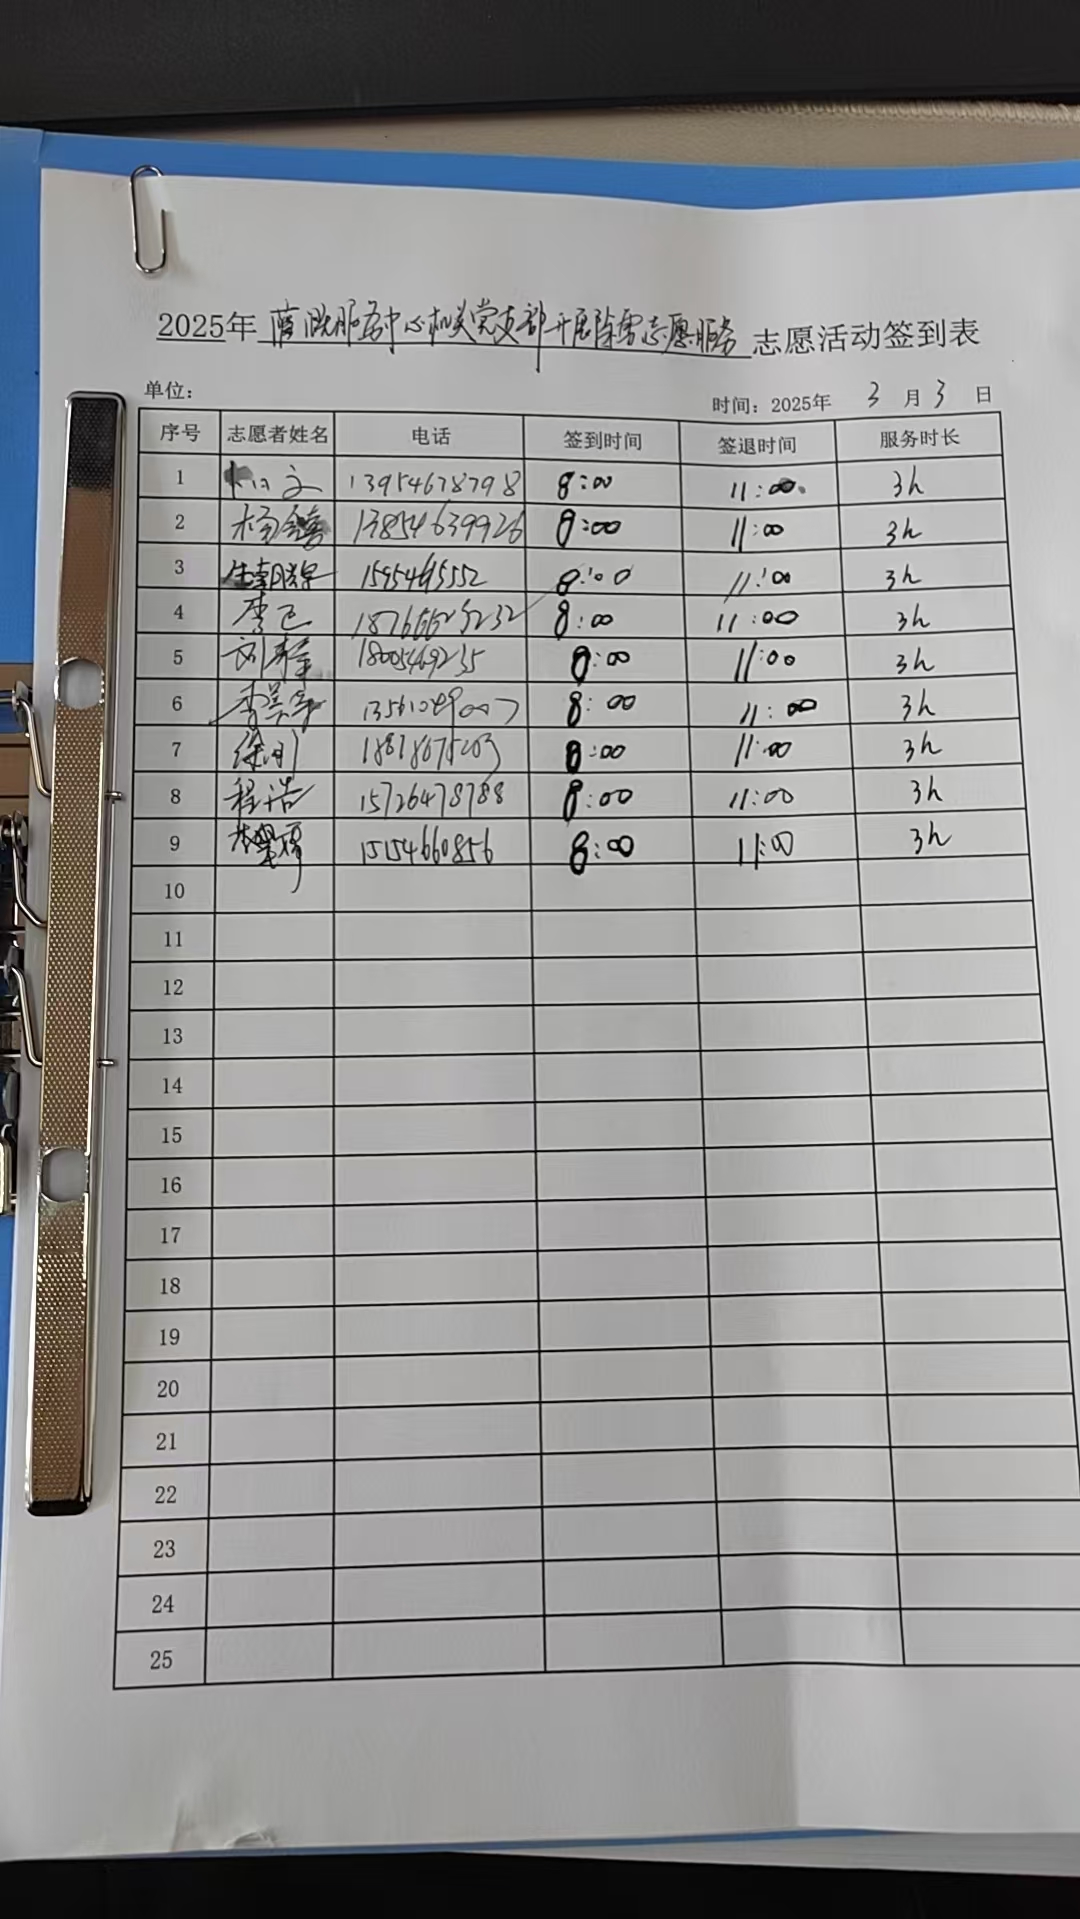 2025年 服务中心机关党支部开展除雪志愿服务 志愿活动签到表
单位: 时间: 2025年 3 月 3 日
序号 志愿者姓名 电话 签到时间 签退时间 服务时长
1 13954678798 8:00 11:00 3h
2 13854639926 8:00 11:00 3h
3 8:00 11:00 3h
4 8:00 11:00 3h
5 8:00 11:00 3h
6 8:00 11:00 3h
7 8:00 11:00 3h
8 程浩 15726478788 8:00 11:00 3h
9 15154660856 8:00 11:00 3h
10
11
12
13
14
15
16
17
18
19
20
21
22
23
24
25